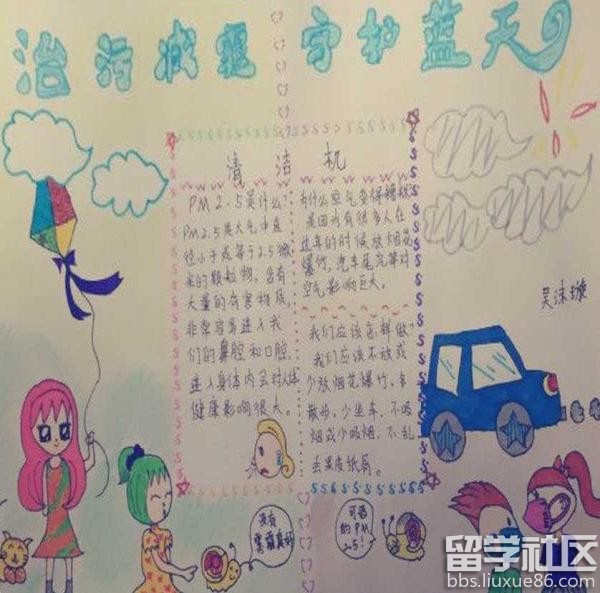 治污减霾 守护蓝天
清洁机
PM2.5是什么?
PM2.5是大气中直
径小于或等于2.5微
米的颗粒物。含有
大量的有害物质,
非常容易进入我
们的鼻腔和口腔,
进入身体内会对人体
健康影响很大。
为什么空气变得糟糕?
是因为有很多人在
过年的时候放烟花
爆竹,汽车尾气等对
空气影响巨大。
我们应该怎样做?
我们应该不放或
少放烟花爆竹,多
散步,少坐车,不吸
烟或少吸烟,不乱
丢果皮纸屑。
没有
雾霾真好
可恶
的PM
2.5!
留学社区
bbs.liuxue86.com